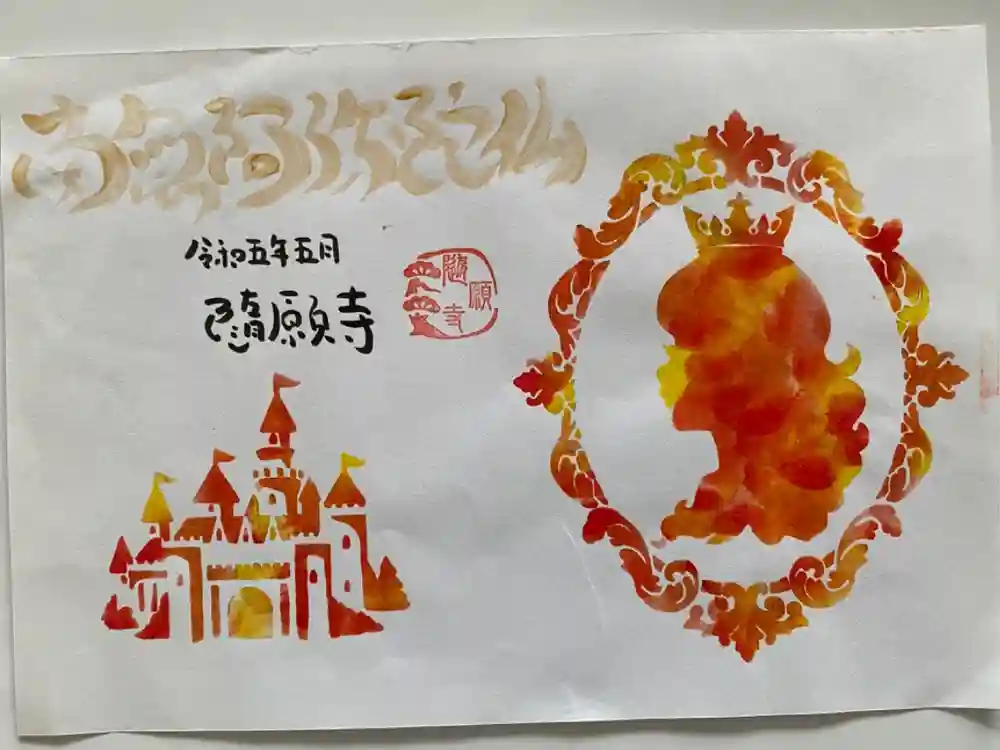 南無阿弥陀仏
令和五年五月
随願寺
随願寺